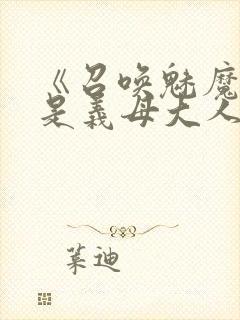 《召唤魅魔
是义母大人
菜迪